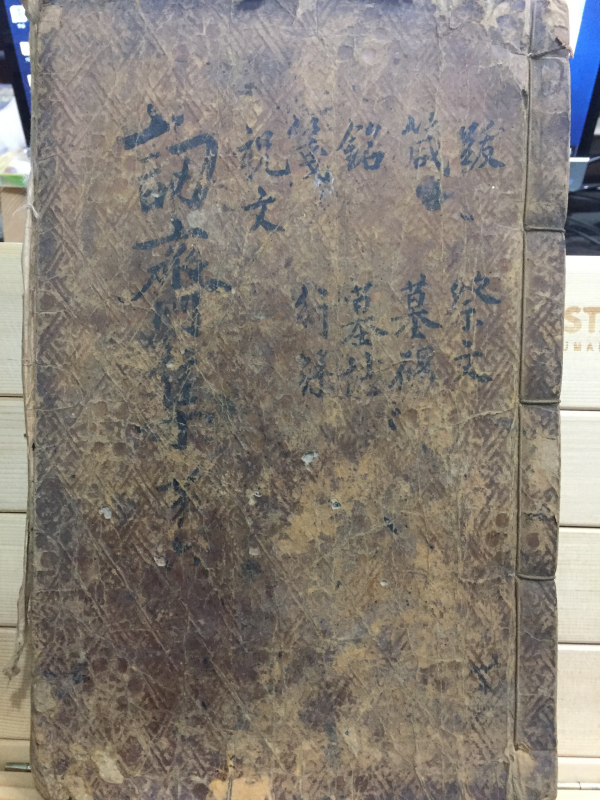 跋 祭文
箴 墓碣
銘 墓誌
箋 行
祝文
訒齋集